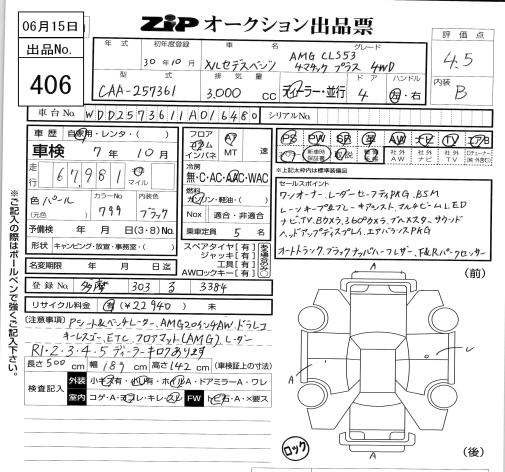 06月15日
ZIP オークション出品票
出品No.
406
評価点
4.5
内装
B
年式 初年度登録 車名 グレード
30年10月 メルセデスベンツ AMG CLS53
4マチック プラス 4WD
型式 排気量 ドア ハンドル
CAA-257361 3,000 CC ディーラー・並行 4 左・右
車台No. WDD2573611A016480 シリアルNo.
車歴 自家用・レンタ・( )
車検 7年10月
走行 67,981 km マイル
色 パール (元色) カラーNo 799 内装色 ブラック
予備検 年 月 日(3・8)No.
形状 キャンピング・放送・事務室・( )
名変期限 年 月 日迄
登録No. 多摩 303 る 3384
リサイクル料金 有(¥22940) 無
フロア コラム インパネ AT MT 速
冷房 無・C・AC・AAC・WAC
燃料 ガソリン・軽油・( )
Nox 適合・非適合
乗車定員 5名
スペアタイヤ[有]
ジャッキ[有]
工具[有]
AWロックキー[有]
PS PW SR 革 AW ナビ TV エアB
新車時保証書 取説 社外AW 社外ナビ 社外TV
※上記太枠内は標準装備品
セールスポイント
ワンオーナー、レーダーセーフティPKG、BSM
レーンキープ&ブレーキアシスト、マルチビームLED
ナビ、TV、Bカメラ、360°カメラ、ブルメスタ サウンド
ヘッドアップディスプレイ、エアバランスPKG
オートトランク、ブラックナッパハーフレザー、F&Rパークセンサー
(注意事項) Pシート&ベンチレーター、AMG20インチAW、ドラレコ
キーレスゴー、ETC、フロアマット(AMG)、レーダー
R1・2・3・4・5ディーラーキロクあります
長さ500cm 幅189cm 高さ142cm (車検証上の寸法)
検査記入
外装 小キズ有・凹有・ホイルA・ドアミラーA・ワレ
室内 コゲ・A・ヨゴレ・キレ・スレ FW トビ石・A・×要ス
※ご記入の際はボールペンで強くご記入下さい。
(前)
A
A
A
ロック
(後)